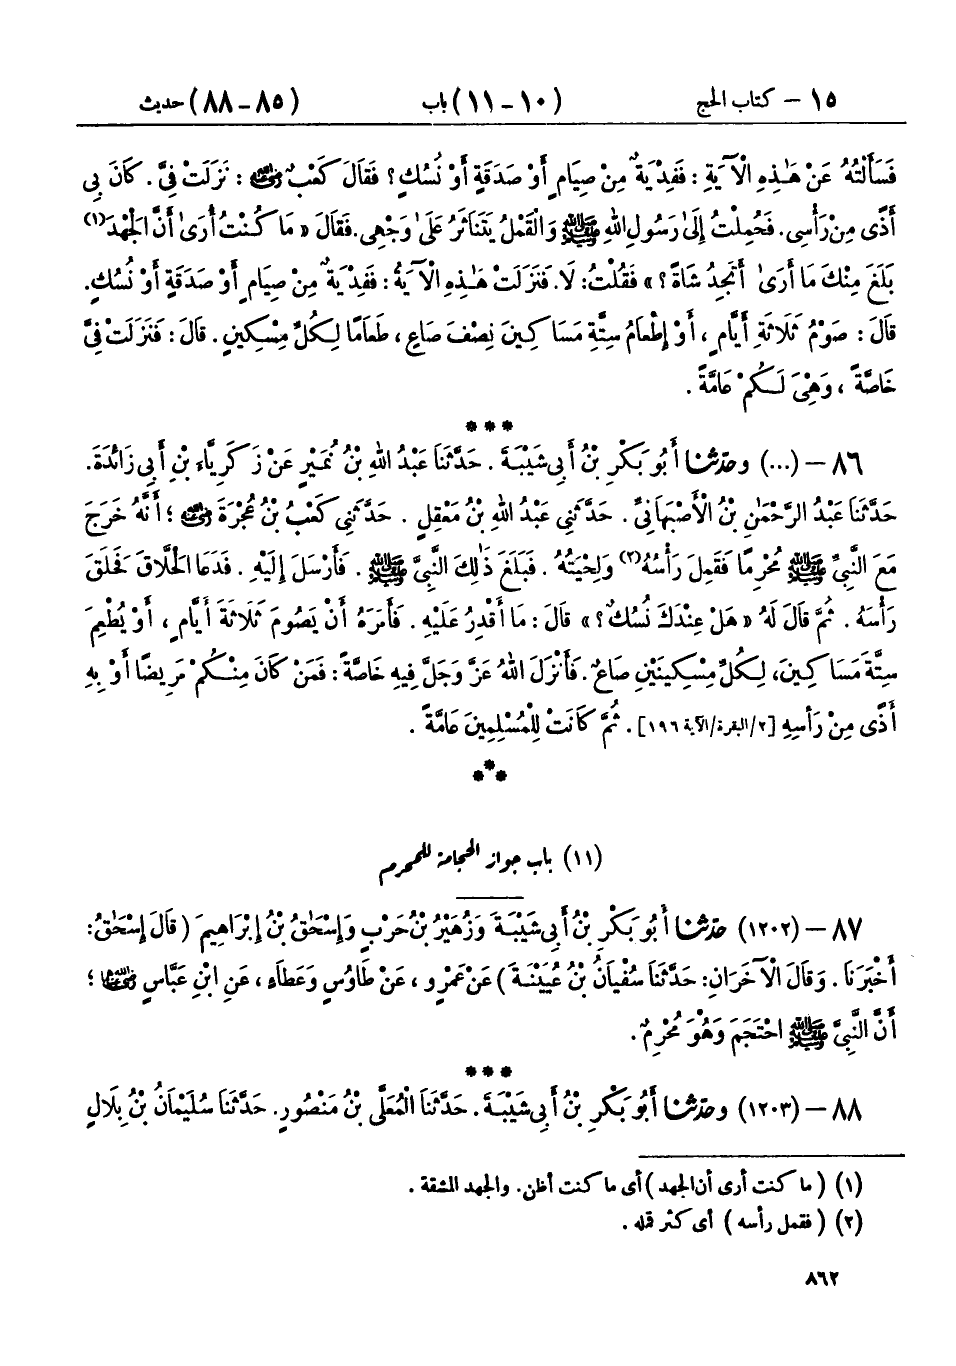 ١٥ – كتاب الحج (١٠ - ١١) باب (٨٥ - ٨٨) حديث
فَسَأَلْتُهُ عَنْ هَٰذِهِ الْآيَةِ : فَفِدْيَةٌ مِنْ صِيَامٍ أَوْ صَدَقَةٍ أَوْ نُسُكٍ ؟ فَقَالَ كَعْبٌ رضي الله عنه : نَزَلَتْ فِيَّ . كَانَ بِي
أَذًى مِنْ رَأْسِي. فَحُمِلْتُ إِلَىٰ رَسُولِ اللهِ ﷺ وَالْقَمْلُ يَتَنَاثَرُ عَلَىٰ وَجْهِي. فَقَالَ « مَا كُنْتُ أُرَىٰ أَنَّ الْجَهْدَ(١)
بَلَغَ مِنْكَ مَا أَرَىٰ أَتَجِدُ شَاةً ؟ » فَقُلْتُ: لَا. فَنَزَلَتْ هَٰذِهِ الْآيَةُ : فَفِدْيَةٌ مِنْ صِيَامٍ أَوْ صَدَقَةٍ أَوْ نُسُكٍ.
قَالَ : صَوْمُ ثَلَاثَةِ أَيَّامٍ ، أَوْ إِطْعَامُ سِتَّةِ مَسَاكِينَ نِصْفَ صَاعٍ ، طَعَامًا لِكُلِّ مِسْكِينٍ . قَالَ : فَنَزَلَتْ فِيَّ
خَاصَّةً ، وَهْيَ لَكُمْ عَامَّةً .
***
٨٦ – (...) وحَدَّثَنَا أَبُو بَكْرِ بْنُ أَبِي شَيْبَةَ . حَدَّثَنَا عَبْدُ اللهِ بْنُ نُمَيْرٍ عَنْ زَكَرِيَّاءَ بْنِ أَبِي زَائِدَةَ.
حَدَّثَنَا عَبْدُ الرَّحْمَٰنِ بْنُ الْأَصْبَهَانِيِّ . حَدَّثَنِي عَبْدُ اللهِ بْنُ مَعْقِلٍ . حَدَّثَنِي كَعْبُ بْنُ عُجْرَةَ رضي الله عنه ؛ أَنَّهُ خَرَجَ
مَعَ النَّبِيِّ ﷺ مُحْرِمًا فَقَمِلَ رَأْسُهُ(٢) وَلِحْيَتُهُ . فَبَلَغَ ذَٰلِكَ النَّبِيَّ ﷺ . فَأَرْسَلَ إِلَيْهِ . فَدَعَا الْحَلَّاقَ فَحَلَقَ
رَأْسَهُ . ثُمَّ قَالَ لَهُ « هَلْ عِنْدَكَ نُسُكٌ ؟ » قَالَ : مَا أَقْدِرُ عَلَيْهِ . فَأَمَرَهُ أَنْ يَصُومَ ثَلَاثَةَ أَيَّامٍ ، أَوْ يُطْعِمَ
سِتَّةَ مَسَاكِينَ، لِكُلِّ مِسْكِينَيْنِ صَاعٌ. فَأَنْزَلَ اللهُ عَزَّ وَجَلَّ فِيهِ خَاصَّةً : فَمَنْ كَانَ مِنْكُمْ مَرِيضًا أَوْ بِهِ
أَذًى مِنْ رَأْسِهِ [٢/البقرة/الآية ١٩٦] . ثُمَّ كَانَتْ لِلْمُسْلِمِينَ عَامَّةً .
***
(١١) باب جواز الحجامة للمحرم
٨٧ – (١٢٠٢) حَدَّثَنَا أَبُو بَكْرِ بْنُ أَبِي شَيْبَةَ وَزُهَيْرُ بْنُ حَرْبٍ وَإِسْحَاقُ بْنُ إِبْرَاهِيمَ ( قَالَ إِسْحَاقُ:
أَخْبَرَنَا . وَقَالَ الْآخَرَانِ: حَدَّثَنَا سُفْيَانُ بْنُ عُيَيْنَةَ ) عَنْ عَمْرٍو ، عَنْ طَاوُسٍ وَعَطَاءٍ ، عَنِ ابْنِ عَبَّاسٍ رضي الله عنهما ؛
أَنَّ النَّبِيَّ ﷺ احْتَجَمَ وَهُوَ مُحْرِمٌ.
***
٨٨ – (١٢٠٣) وحَدَّثَنَا أَبُو بَكْرِ بْنُ أَبِي شَيْبَةَ . حَدَّثَنَا الْمُعَلَّى بْنُ مَنْصُورٍ. حَدَّثَنَا سُلَيْمَانُ بْنُ بِلَالٍ
(١) ( ما كنت أرى أن الجهد ) أى ما كنت أظن. والجهد المشقة .
(٢) ( فقمل رأسه ) أى كثر قمله .
٨٦٢